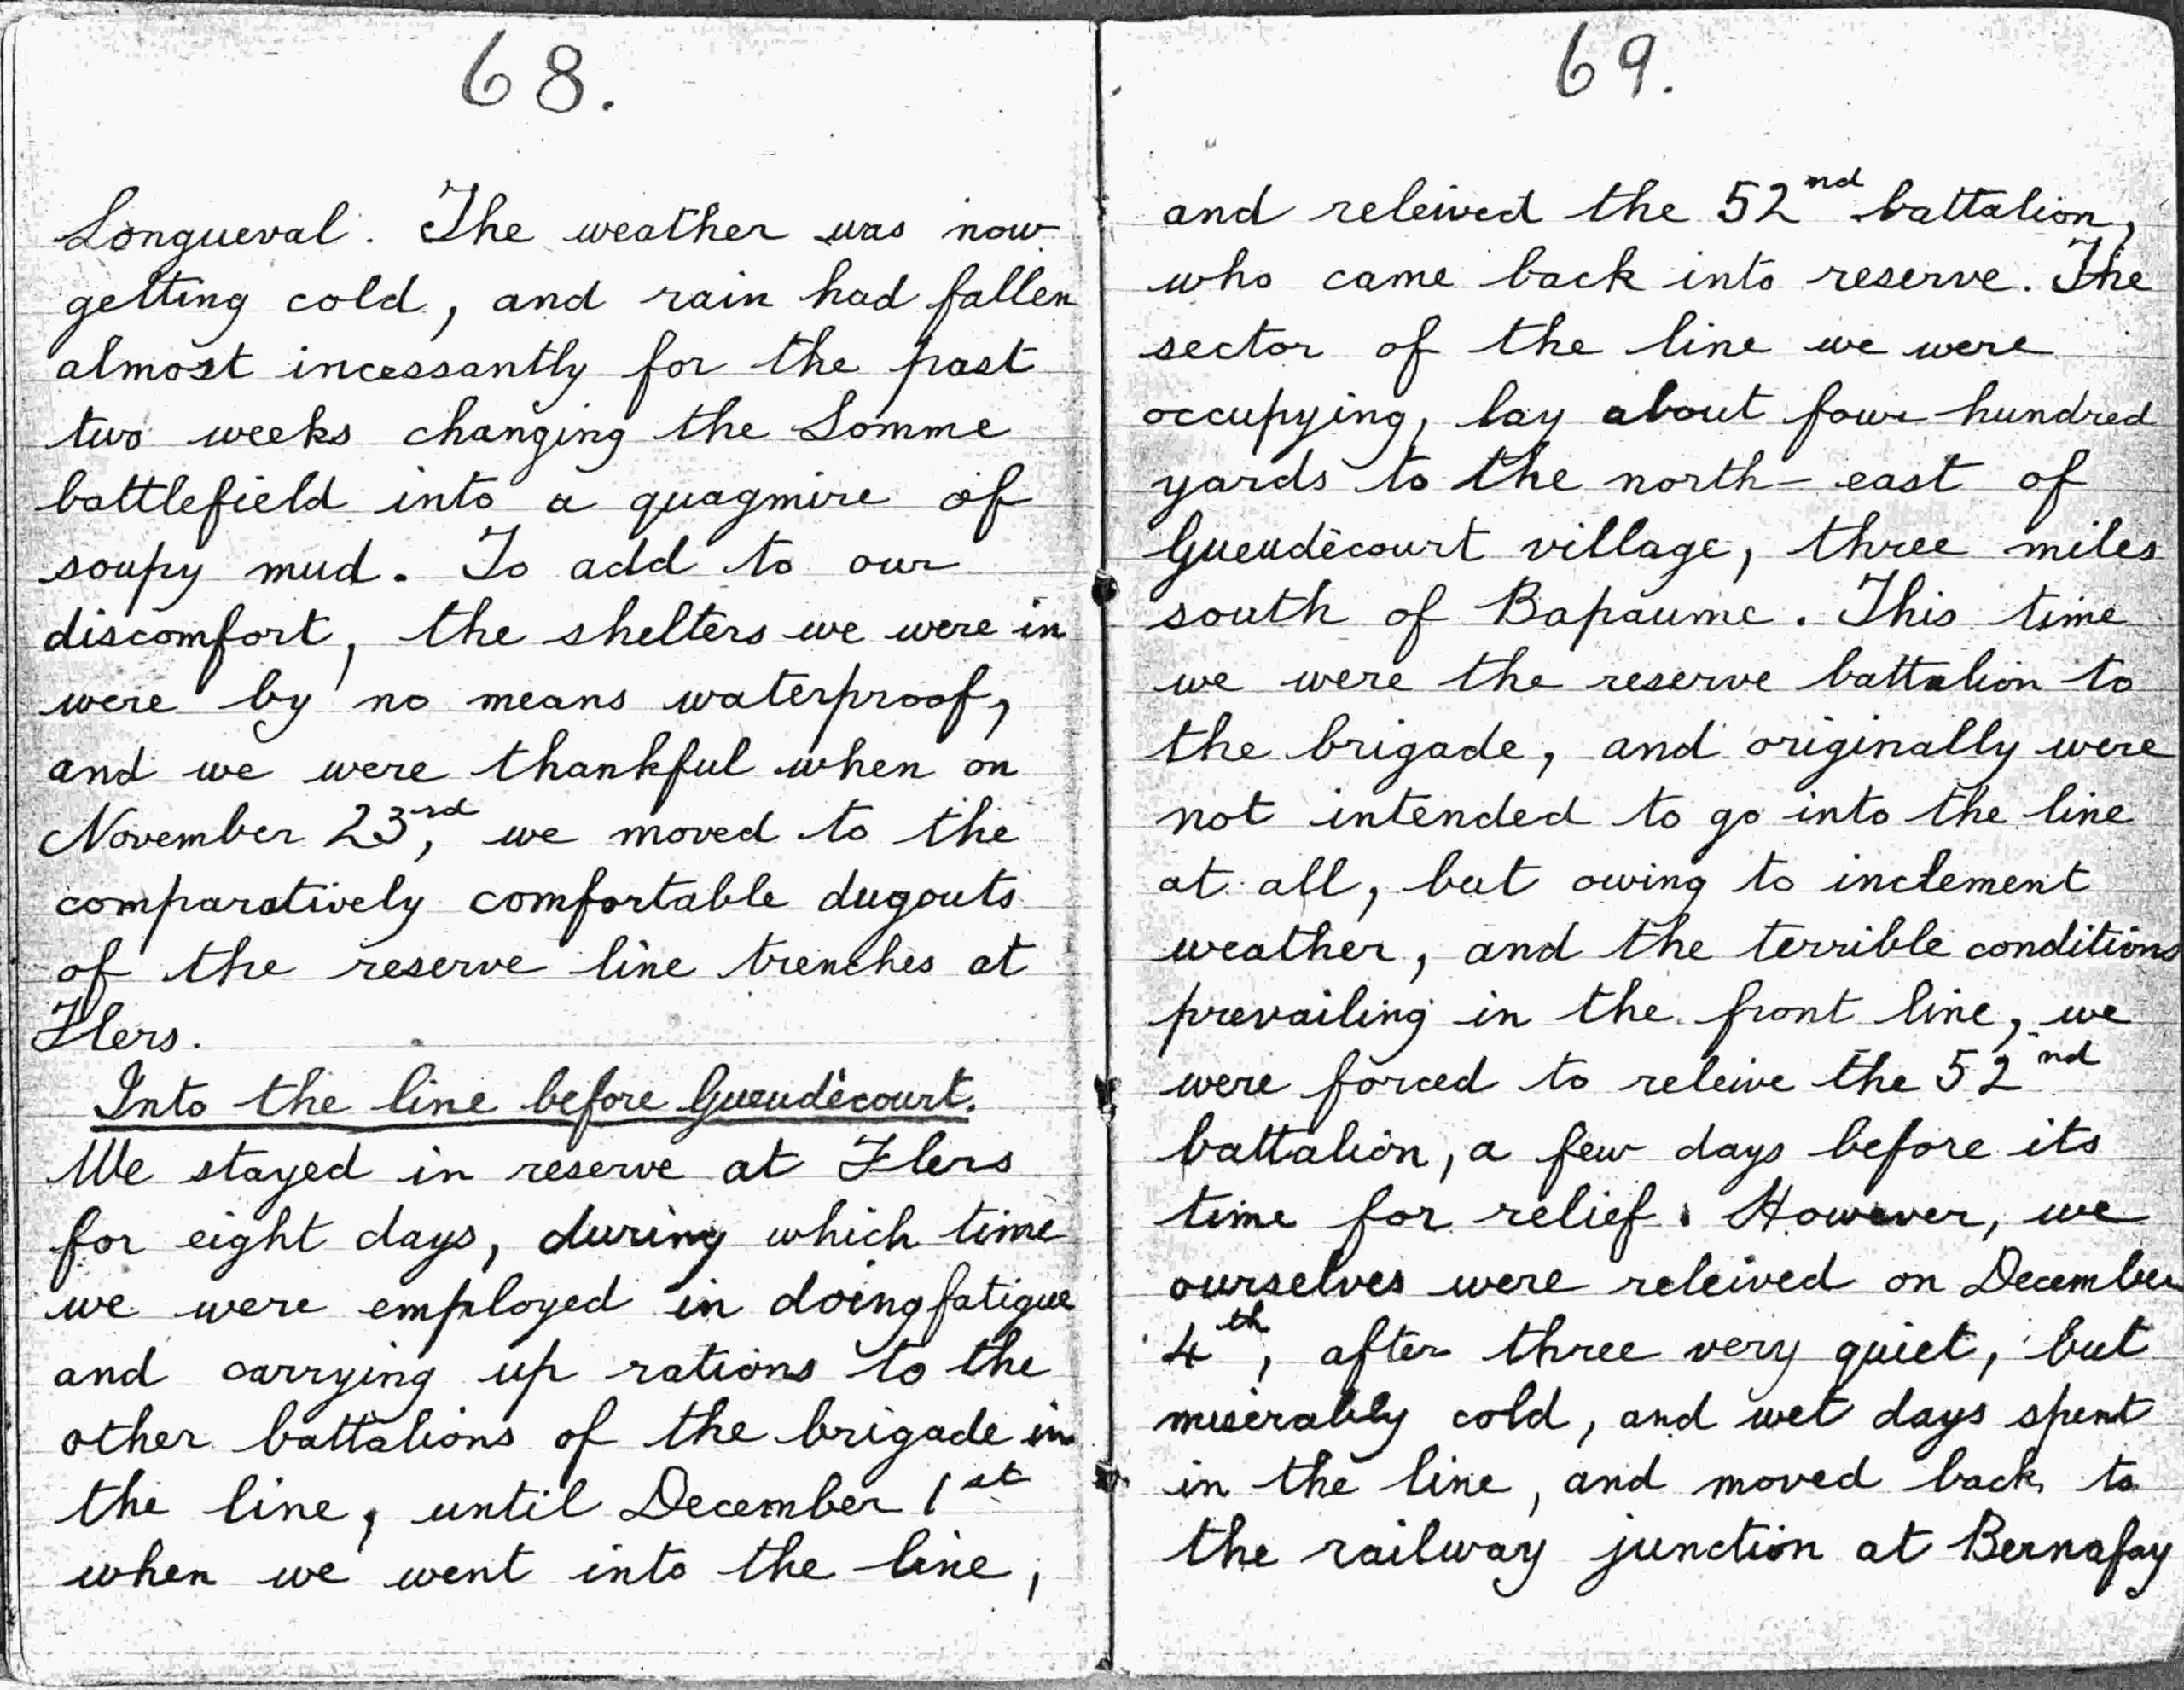 68.
Longueval. The weather was now
getting cold, and rain had fallen
almost incessantly for the past
two weeks changing the Somme
battlefield into a quagmire of
soupy mud. To add to our
discomfort, the shelters we were in
were by no means waterproof,
and we were thankful when on
November 23rd, we moved to the
comparatively comfortable dugouts
of the reserve line trenches at
Flers.
Into the line before Gueudècourt.
We stayed in reserve at Flers
for eight days, during which time
we were employed in doing fatigue
and carrying up rations to the
other battalions of the brigade in
the line, until December 1st
when we went into the line,
69.
and releived the 52nd battalion,
who came back into reserve. The
sector of the line we were
occupying, lay about four hundred
yards to the north-east of
Gueudècourt village, three miles
south of Bapaume. This time
we were the reserve battalion to
the brigade, and originally were
not intended to go into the line
at all, but owing to inclement
weather, and the terrible conditions
prevailing in the front line, we
were forced to releive the 52nd
battalion, a few days before its
time for relief. However, we
ourselves were releived on December
4th, after three very quiet, but
miserably cold, and wet days spent
in the line, and moved back to
the railway junction at Bernafay